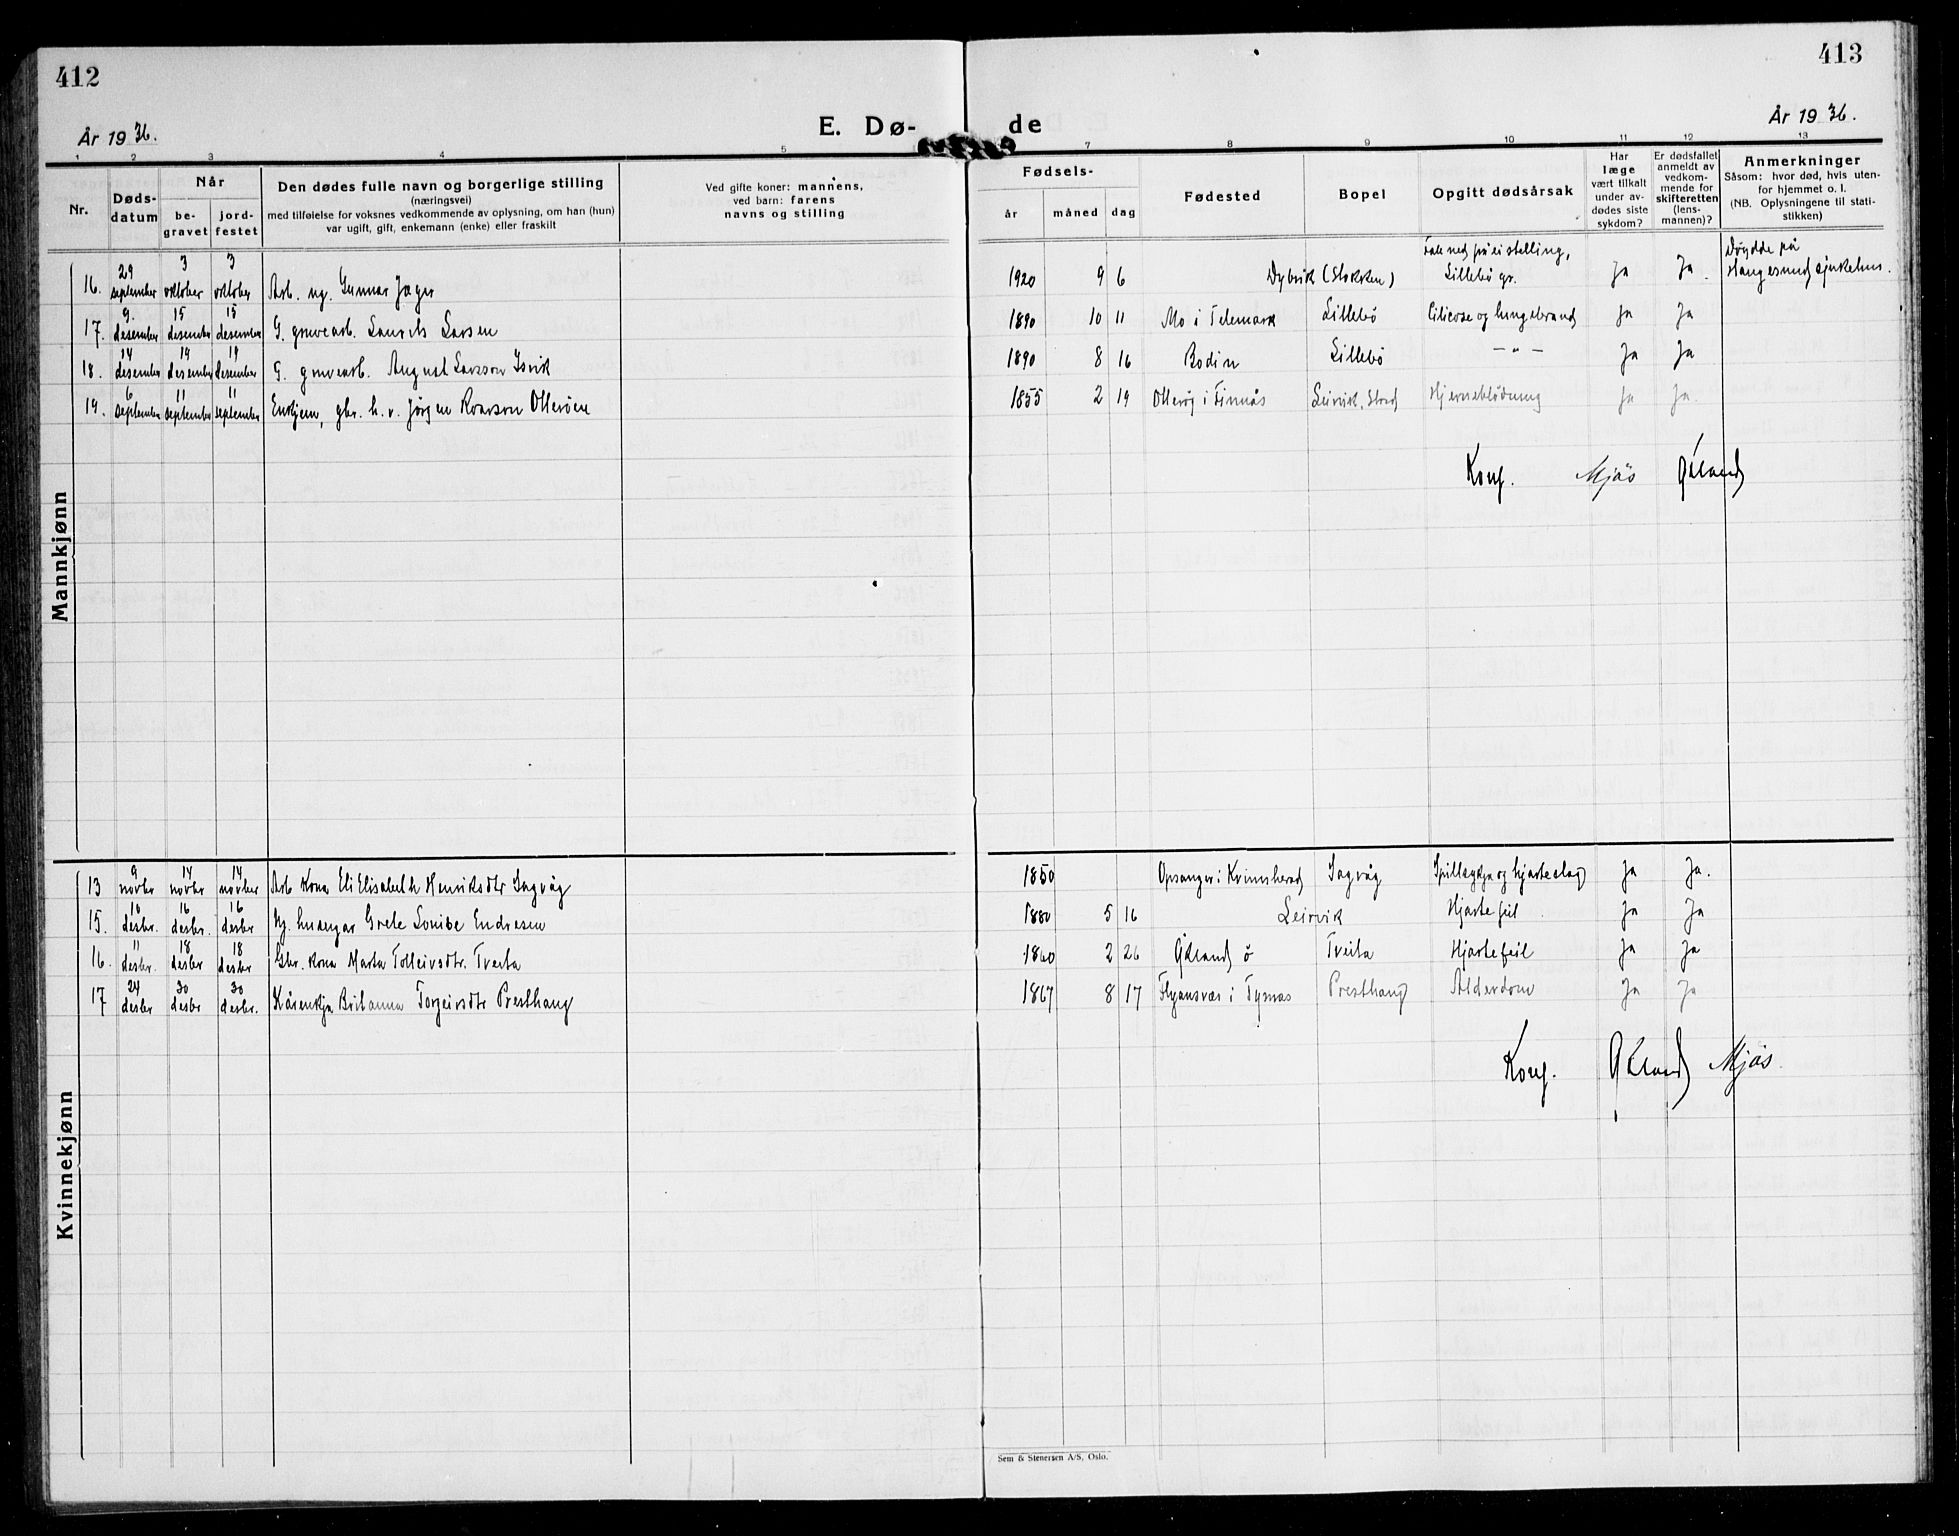 412
413
År 1936.
E. Dø-
de
År 1936.
1 2 3 4 5 7 8 9 10 11 12 13
Nr.
Døds-
datum
Når
be-
gravet
jord-
festet
Den dødes fulle navn og borgerlige stilling
(næringsvei)
med tilføielse for voksnes vedkommende av oplysning, om han (hun)
var ugift, gift, enkemann (enke) eller fraskilt
Ved gifte koner: mannens,
ved barn: farens
navns og stilling
Fødsels-
år
måned
dag
Fødested
Bopel
Opgitt dødsårsak
Har
læge
vært tilkalt
under av-
dødes siste
sykdom?
Er dødsfallet
anmeldt av
vedkom-
mende for
skifteretten
(lens-
mannen)?
Anmerkninger
Såsom: hvor død, hvis uten-
for hjemmet o. l.
(NB. Oplysningene til stati-
stikken)
Mannkjønn
16. 29 september 3 oktober 3 oktober Arb. ug. Gunnar Jæger 1920 9 6 Dybvik (Stokken) Falt ned frå ei stelling, Lillebö gr. Ja Ja. Döydde på Haugesund sjukehus.
17. 9. desember 15 desember 15 desember G. gruvearb. Laurits Larsen 1890 10 11 Mo i Telemark Lillebö Cilicose og lungebrand Ja Ja
18. 14 desember 19 desember 19 desember G. gruvearb. August Larsson Isvik 1890 8 16 Bodin Lillebö — " — Ja Ja
19. 6 september 11 september 11 september Enkjem, gbr. h. v. Jørgen Olleröen 1855 2 19 Olleröy i Finnås Leirvik, Stord Hjerneblödning Ja Ja.
Konf. Mjös Økland
Kvinnekjønn
13 9 novbr 14 novbr 14 novbr Arb Kona Eli Elisabeth Henriksdtr Sagvåg 1850 Opsanger i Kvinnherad Sagvåg og hjarteslag Ja Ja.
15. 10 desbr. 16 desbr. 16 desbr Grete Louise Endresen 1880 5 16 Leirvik Hjartefeil Ja Ja
16. 11 desbr. 18 desbr 18 desbr Gbr. kona Marta Tolleivsdtr. Tveita 1860 2 26 Økland ö Tveita Hjartefeil Ja Ja
17 24 desbr 30 desbr 30 desbr. Kårenkja Britanna Torgeirsdtr Presthaug 1867 8 17 i Tysnes Presthaug Alderdom Ja Ja
Konf. Økland Mjös.
Sem & Stenersen A/S, Oslo.